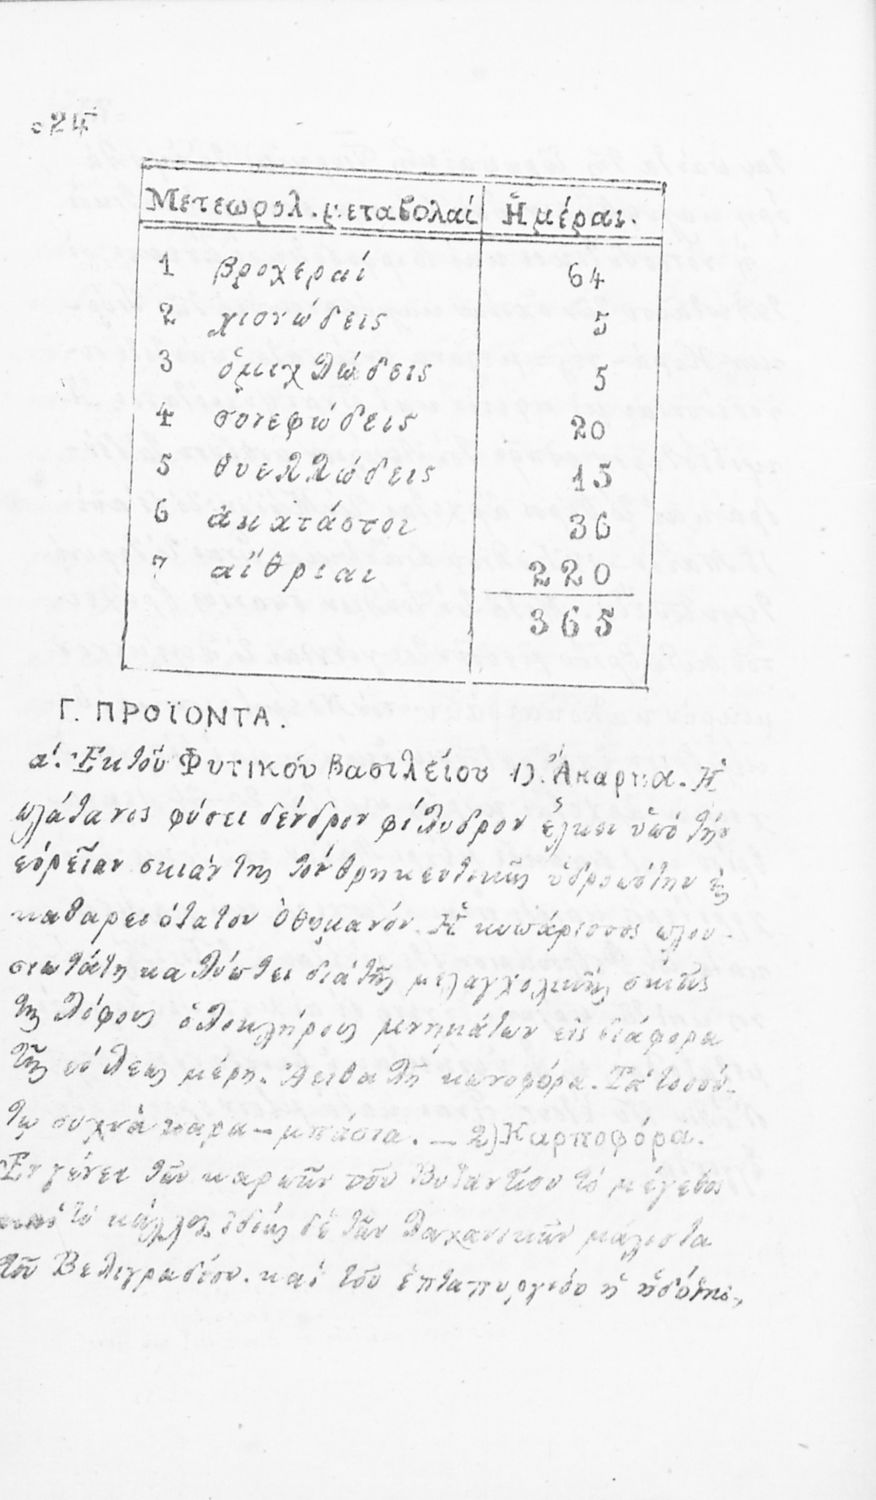 24
Μετεωρολ. μεταβολαί Ἡμέραι.
1 βροχεραί 64
2 χιονώδεις 5
3 ὁμιχλώδεις 5
4 συνεφώδεις 20
5 θυελλώδεις 15
6 ἀκατάστοι 36
7 αἴθριαι 220
365
Γ. ΠΡΟΪΟΝΤΑ.
α΄. Ἐκ τοῦ Φυτικού Βασιλείου 1). Ἄκαρπα. Ἡ
πλάτανος φύσει δένδρον φίλυδρον ἕλκει ὑπό τήν
εὐρεῖαν σκιάν της τόν θρησκευτικῶς ὑδροπότην
καθαρειότατον Ὀθωμανόν. Ἡ κυπάρισσος πλου-
σιωτάτη καλύπτει διά τῆς μελαγχολικῆς σκιᾶς
της λόφους ὁλοκλήρους μνημάτων εἰς διάφορα
τῆς πόλεως μέρη. Ἀειθαλῆ κωνοφόρα. Τά
συχνά παρα-μπάσια. — 2) Καρποφόρα.
Εὐγένεια τῶν καρπῶν τοῦ Βυζαντίου τό μέγεθος
καί τό κάλλος, ἰδίως δέ τῶν λαχανικῶν μάλιστα
τοῦ Βελιγραδίου. καί τοῦ ἑπταπυργίου ἡ ἡδύτης,